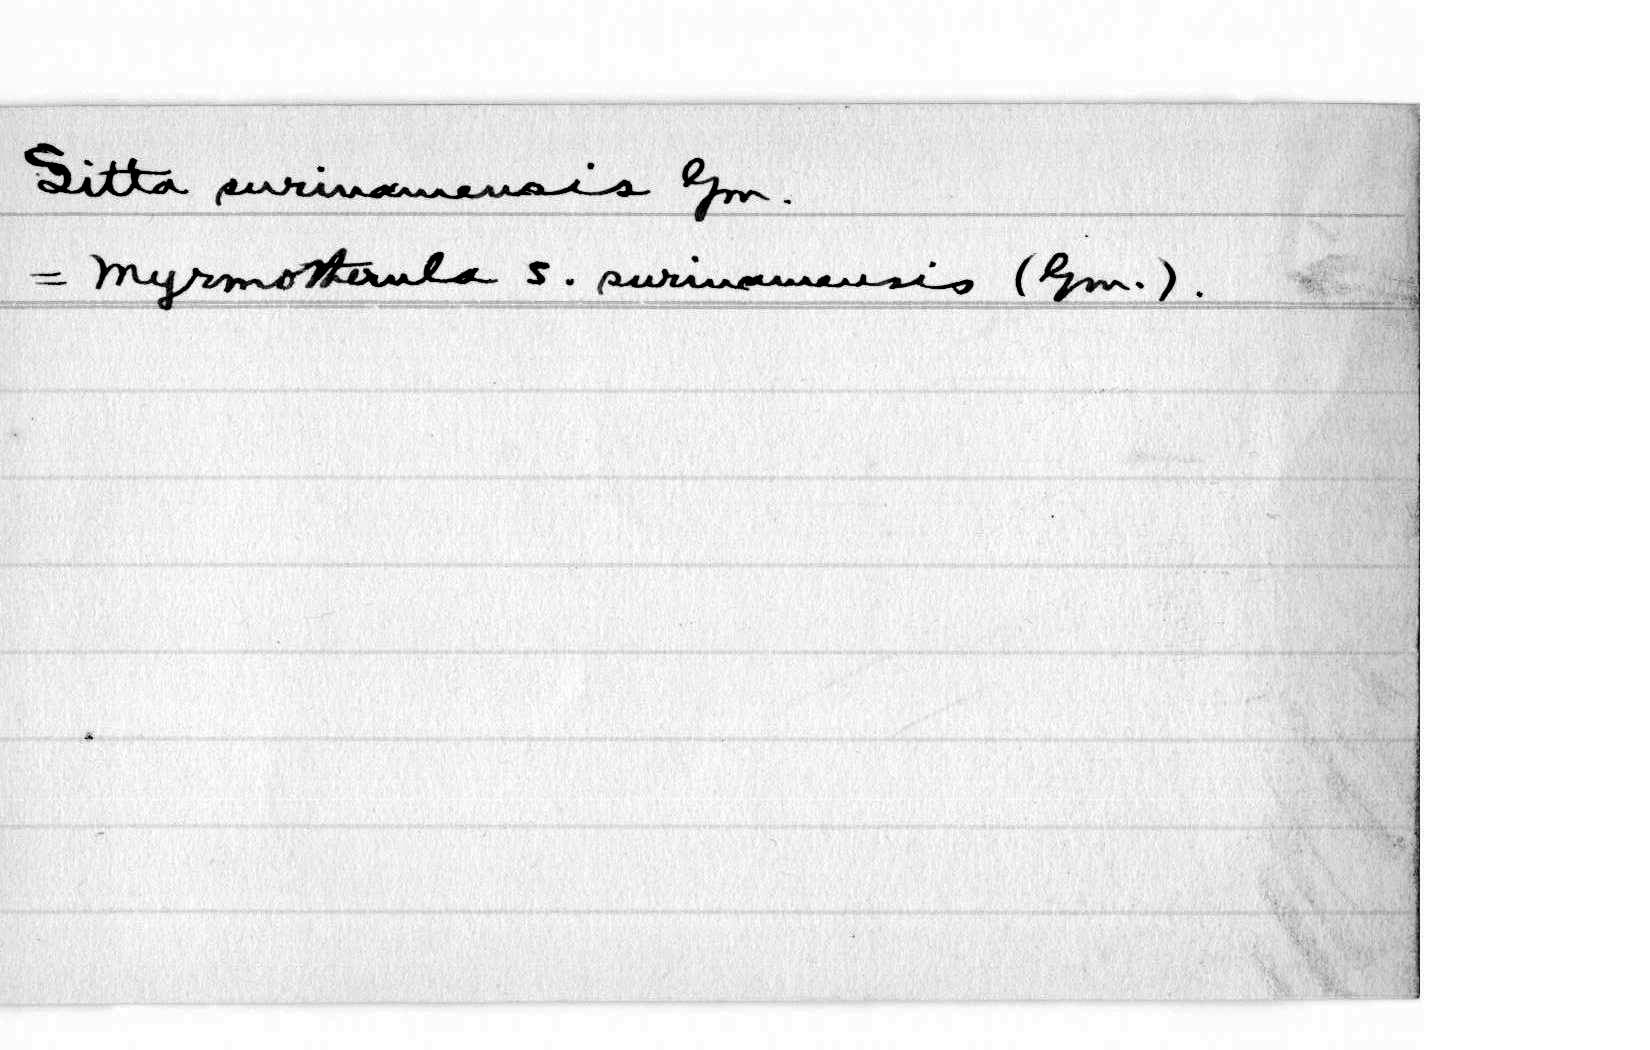 Sitta surinamensis Gm.
= Myrmotherula s. surinamensis (Gm.).